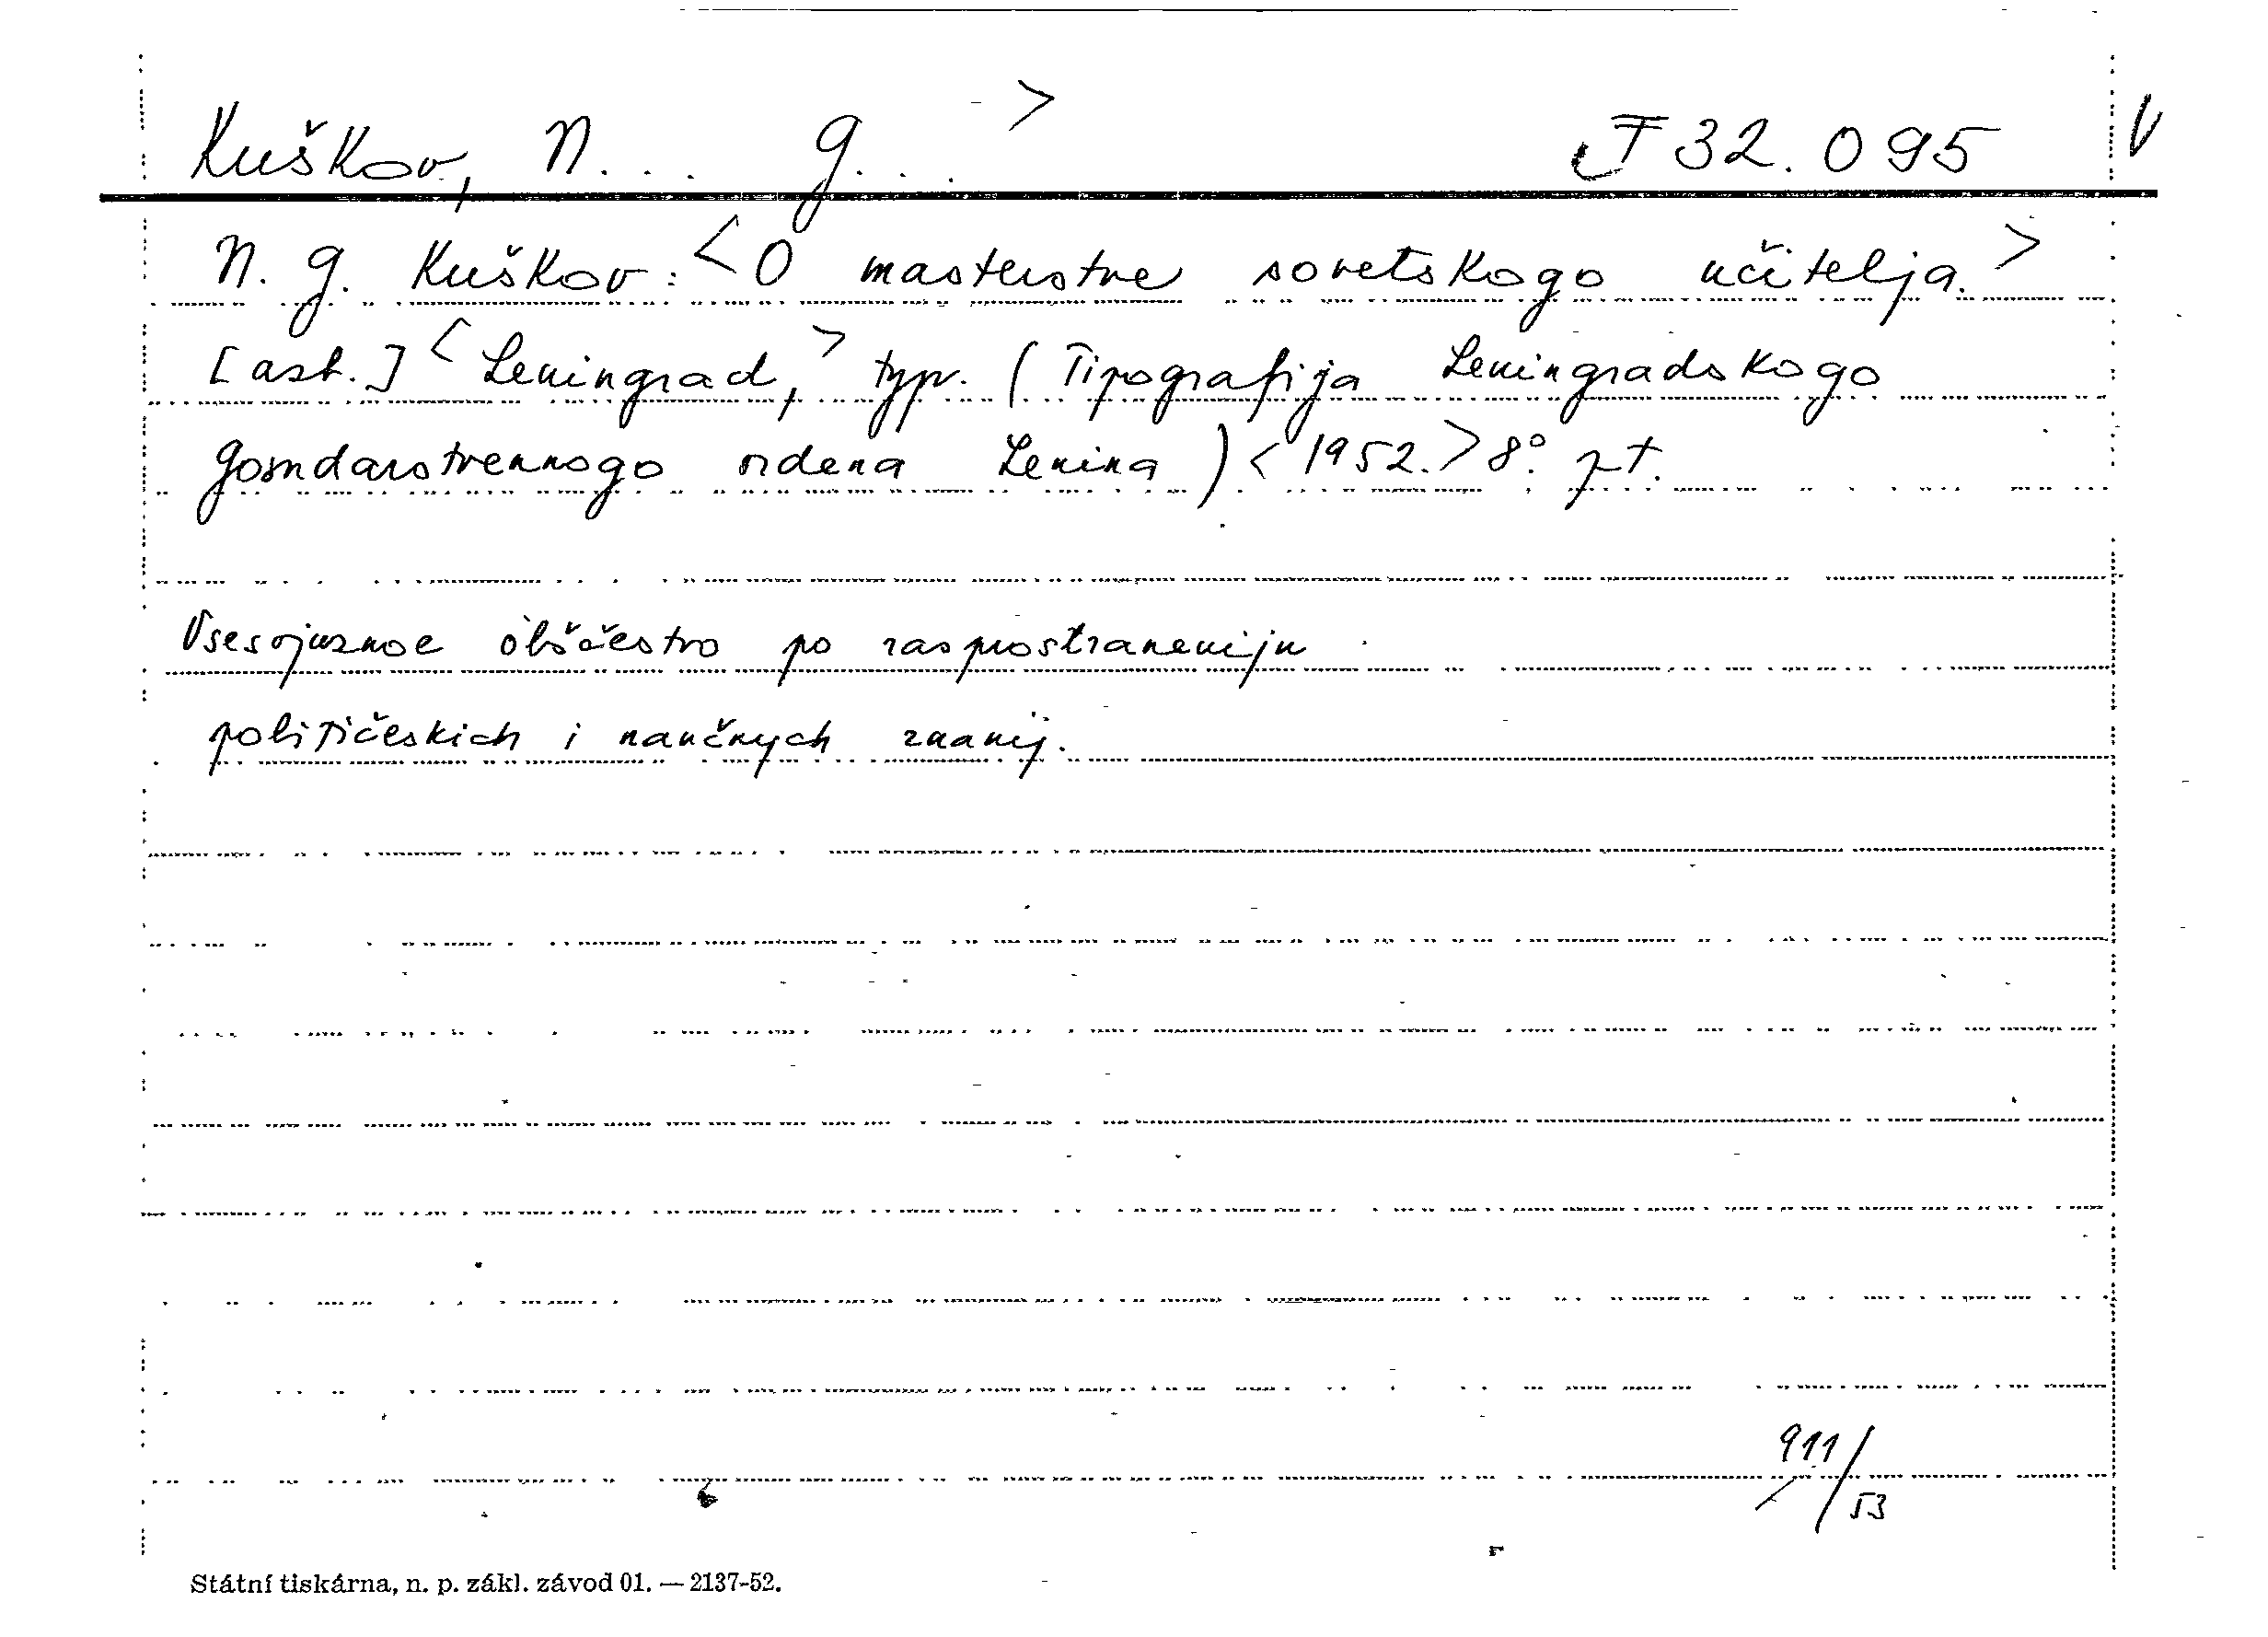 Kuškov, N... G... > T 32.095 V
N. G. Kuškov: <O masterstve sovetskogo učitelja.>
[azb.] <Leningrad,> typ. (Tipografija Leningradskogo
gosudarstvennogo ordena Lenina) <1952.> 8°.
Vsesojuznoe obščestvo po rasprostraneniju
političeskich i naučnych znanij.
911/53
Státní tiskárna, n. p. zákl. závod 01. — 2137-52.